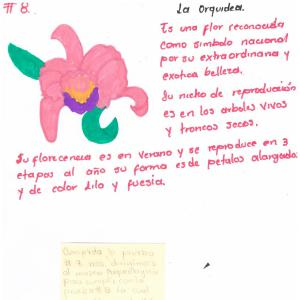 # 8.
La Orquidea.
Es una flor reconocida
como simbolo nacional
por su extraordinaria y
exotica belleza.
Su nicho de reproducción
es en los arboles vivos
y troncos secos.
Su florecencia es en verano y se reproduce en 3
etapas al año su forma es de petalos alargados
y de color lila y fuesia.
la prueba
# 7 nos dirigimos
al museo
para cumplir con la
# 8 la cual